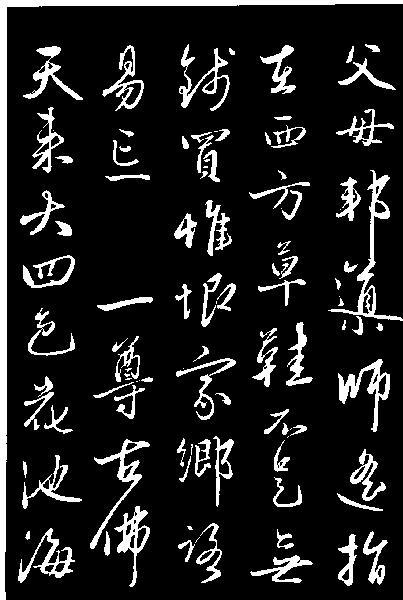 父母邦導師遙指
在西方草鞋不是無
錢買惟恨家鄉路
易忘 一尊古佛
天來大四色花池海